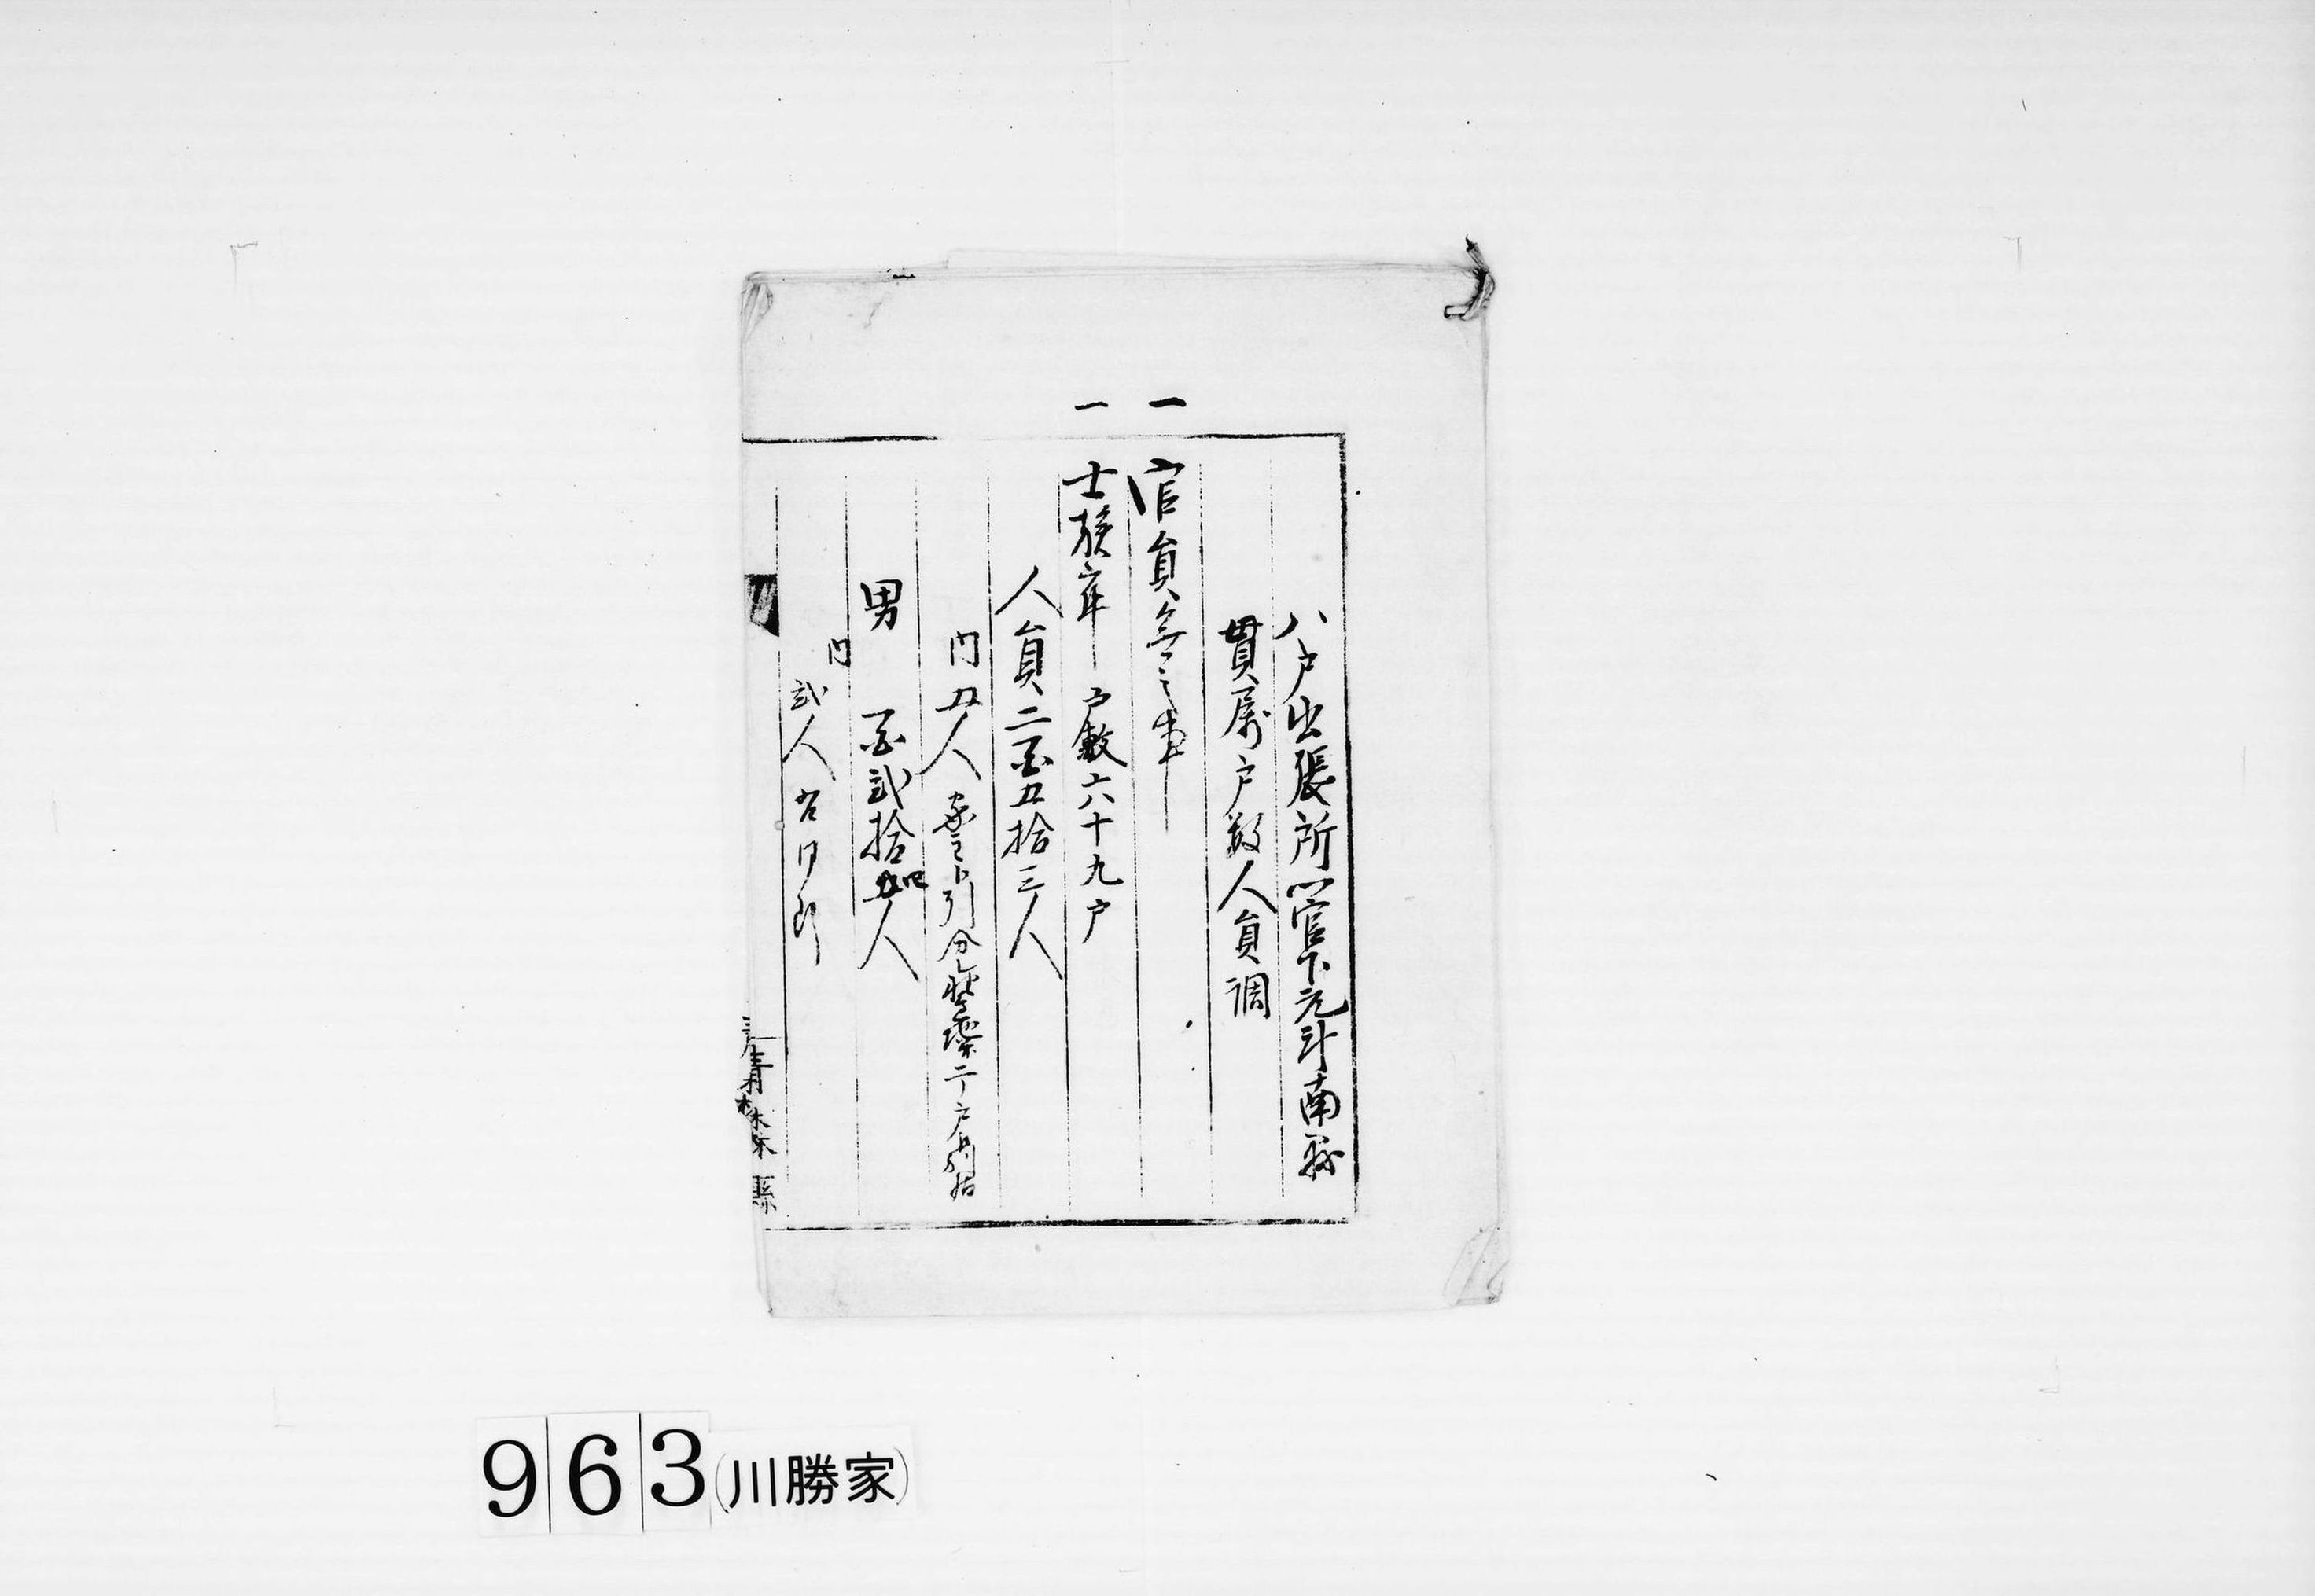 八戸出張所管下元斗南縣
貫属戸数人員調
一 官員無之事
一 士族卒 戸數六十九戸
人員二百五拾三人
内五人
男 百弐拾四人
内
弐人
青森縣
963(川勝家)